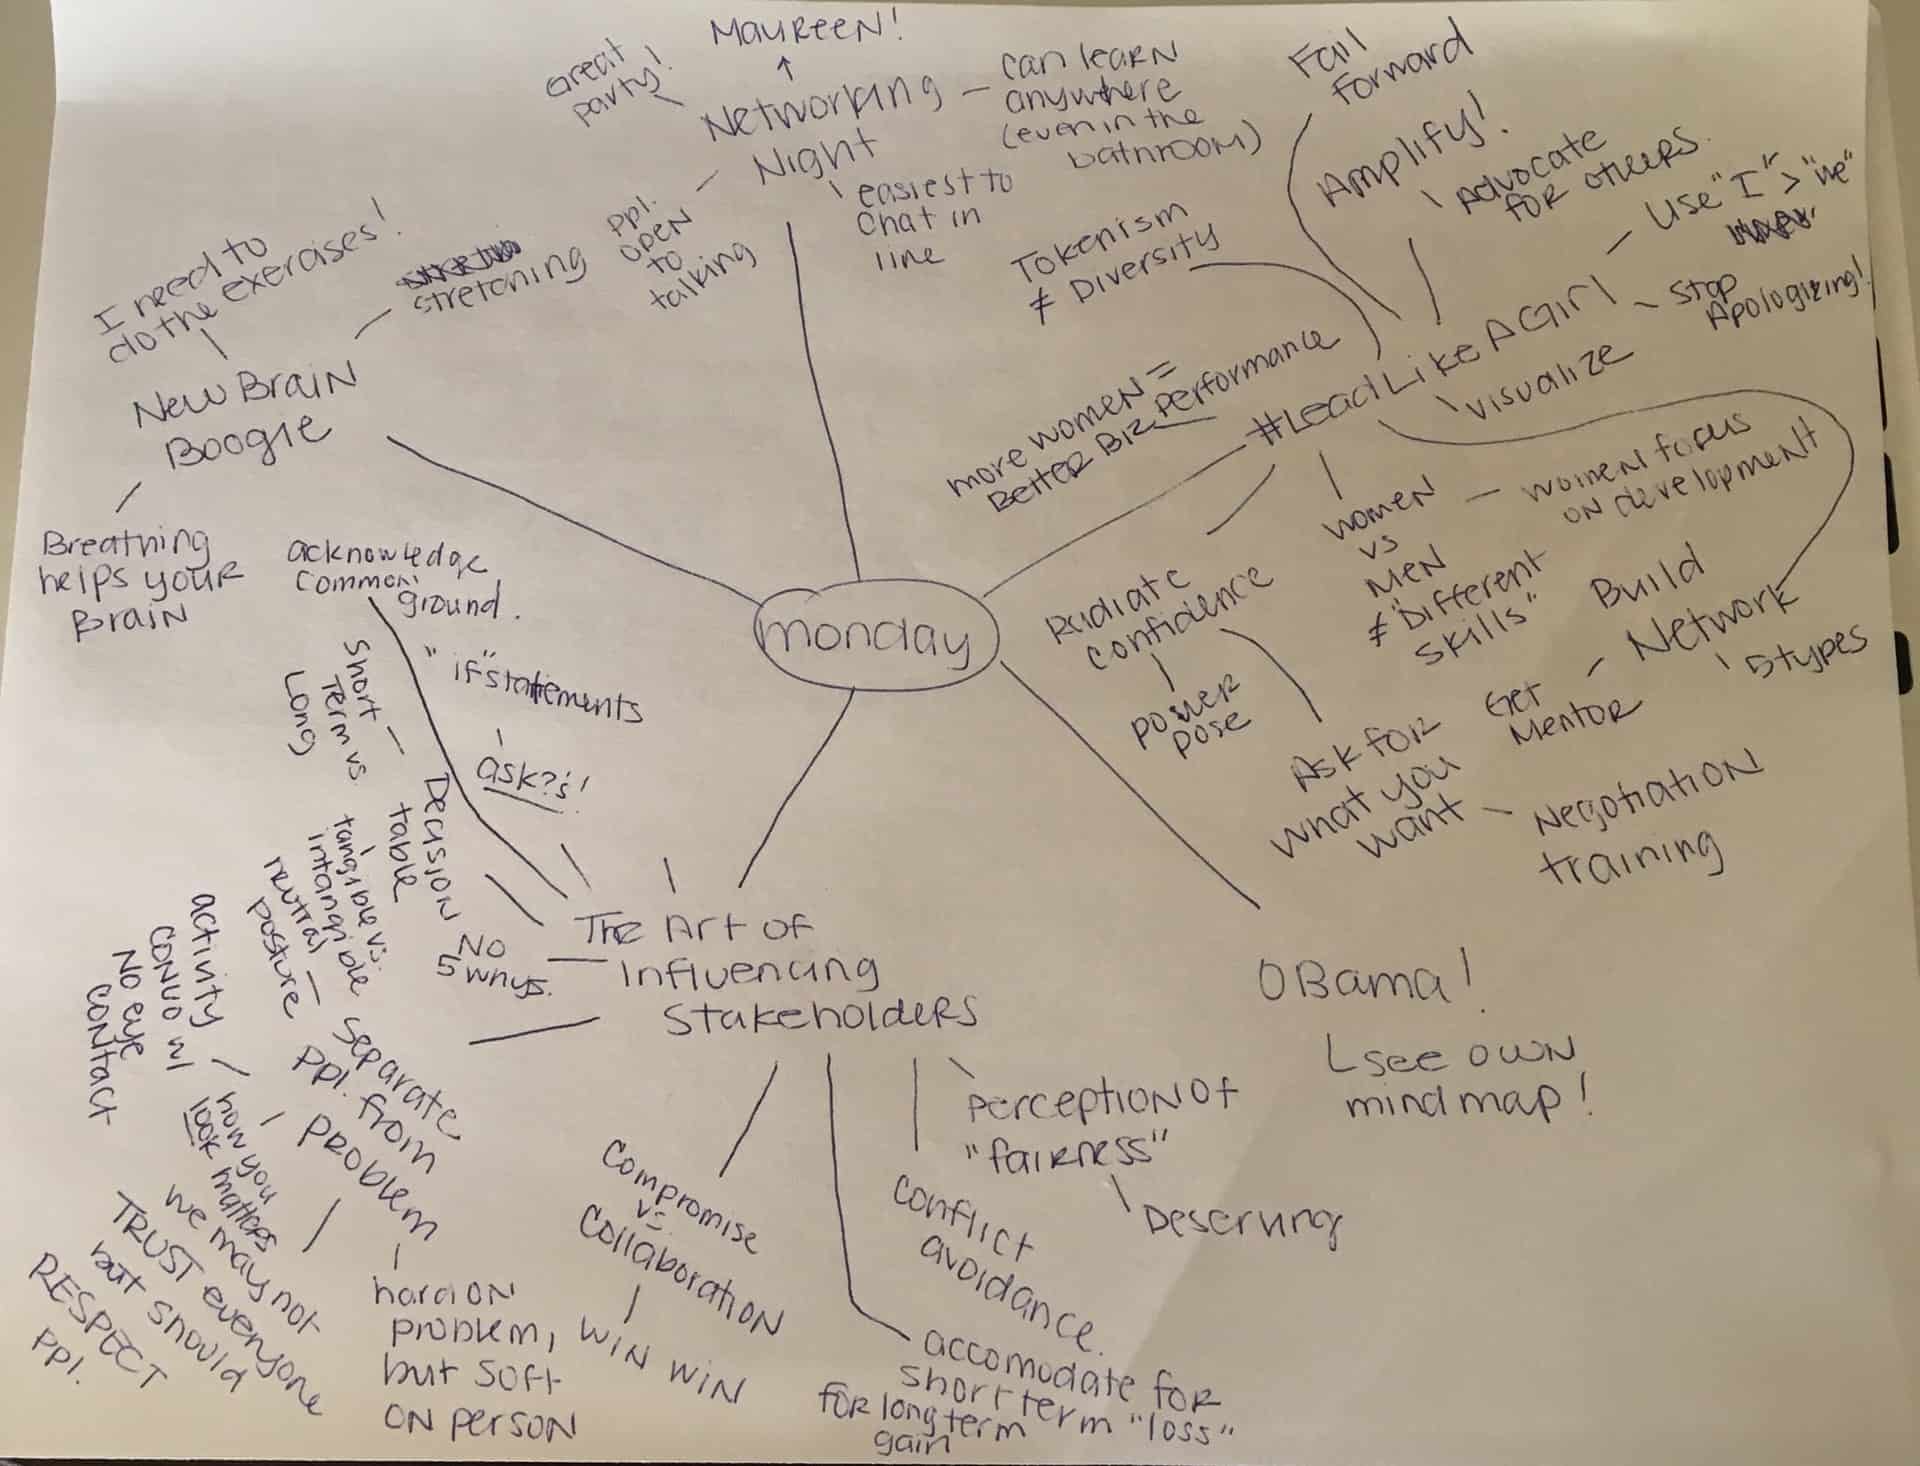 Maureen!
Great
party!
Networking
Night
can learn
anywhere
(even in the
bathroom)
easiest to
chat in
line
ppl.
open
to
talking
I need to
do the exercises!
stretching
New Brain
Boogie
Breathing
helps your
Brain
monday
Fail
Forward
Amplify!
Advocate
for others.
Use "I" > "we"
Stop
Apologizing!
Tokenism
≠ Diversity
#LeadLikeAGirl
more women =
Better Biz Performance
visualize
women
vs
men
≠ "Different
skills"
women focus
on development
Radiate
confidence
power
pose
Build
Network
5 types
Get
Mentor
Ask for
what you
want
Negotiation
training
OBama!
see own
mind map!
The Art of
Influencing
Stakeholders
acknowledge
common
ground.
"if" statements
ask ?'s!
Decision
table
Short
Term vs
Long
tangible vs.
intangible
No
5 whys.
separate
ppl. from
problem
neutral
posture
how you
look matters
activity
convo w/
No eye
contact
we may not
TRUST everyone
but should
RESPECT
ppl.
hard on
problem,
but soft
on person
Compromise
vs
Collaboration
WIN WIN
accomodate for
short term "loss"
for long term
gain
conflict
avoidance.
perception of
"fairness"
Deserving